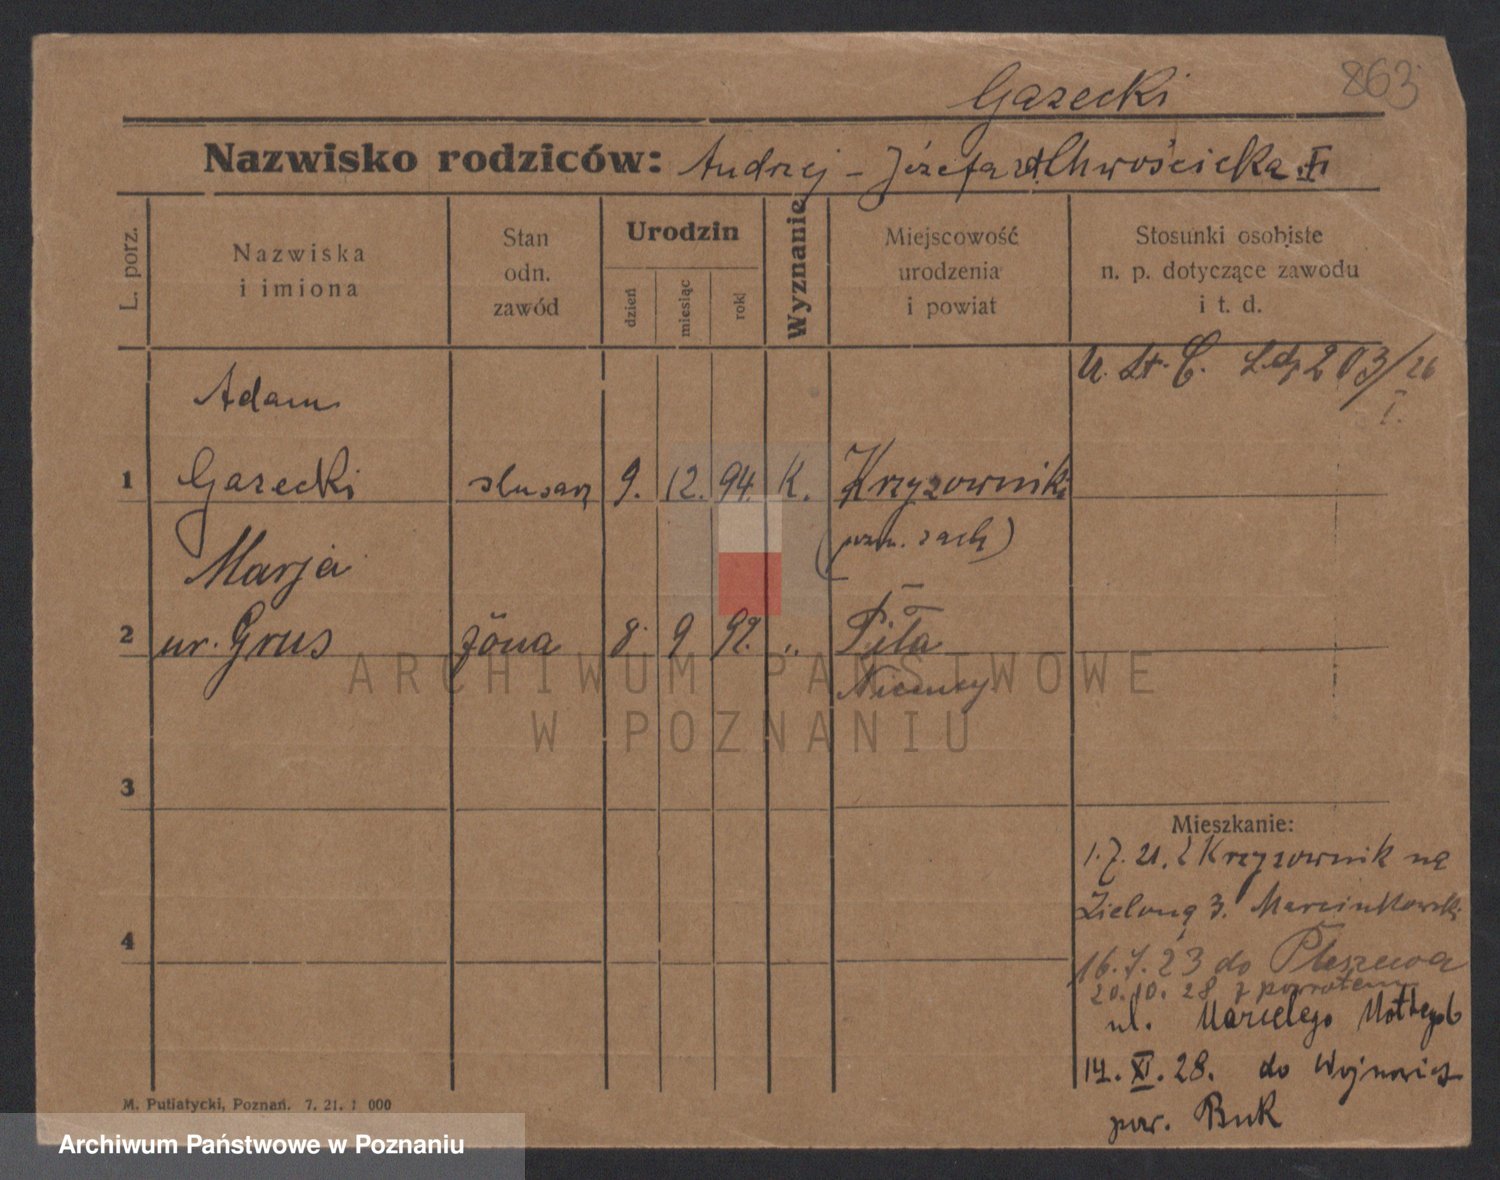 863
Gazecki
Nazwisko rodziców: Andrzej - Józefa Chrościcka
L. porz.
Nazwiska
i imiona
Stan
odn.
zawód
Urodzin
dzień
miesiąc
rok
Wyznanie
Miejscowość
urodzenia
i powiat
Stosunki osobiste
n. p. dotyczące zawodu
i t. d.
U. St. C. L. dz 203/26
I.
Adam
1 Gazecki slusarz 9. 12. 94. K. Krzyzowniki
(pozn. zach)
Marja
2 ur. Grus żona 8. 9 92. ,, Piła
Niemcy
3
Mieszkanie:
1.7.21. z Krzyzownik na
Zieloną 3. Marcinkowski
4
16.7.23 do Pleszewa
20.10.28 z powrotem
ul. Marcelego Mottego 6
14.XI.28. do Wojnowic
pow. Buk
M. Putiatycki, Poznań. 7. 21. 1 000
ARCHIWUM PAŃSTWOWE
W POZNANIU
Archiwum Państwowe w Poznaniu